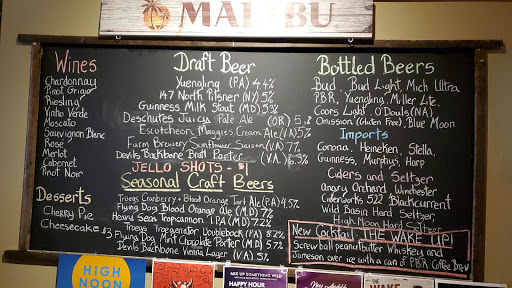 MALIBU
Wines
Chardonnay
Pinot Grigio
Riesling
Vinho Verde
Moscato
Sauvignon Blanc
Rose
Merlot
Cabernet
Pinot Noir
Desserts
Cherry Pie
Cheesecake $3
Draft Beer
Yuengling (PA) 4.4%
147 North Pilsner (NY) 5%
Guinness Milk Stout (MD) 5%
Deschutes Juicy Pale Ale (OR) 5.
Escutcheon Maggies Cream Ale (VA) 5%
Farm Brewery Sunflower Saison (VA) 7%
Devils Backbone Brett Porter (VA) 6.3%
JELLO SHOTS - $1
Seasonal Craft Beers
Troegs Cranberry + Blood Orange Tart Ale (PA) 4.5%
Flying Dog Blood Orange Ale (MD) 7%
Heavy Seas Tropicannon IPA (MD) 7.2%
Troegs Troegenator Doublebock (PA) 8.2%
Flying Dog Mint Chocolate Porter (MD) 5.7%
Devils Backbone Vienna Lager (VA) 5%
Bottled Beers
Bud, Bud Light, Mich Ultra
PBR, Yuengling, Miller Lite,
Coors Light, O'Douls (NA)
Omission (Gluten Free), Blue Moon
Imports
Corona, Heineken, Stella,
Guinness, Murphys, Harp
Ciders and Seltzer
Angry Orchard Winchester
Ciderworks 522 Blackcurrant
Wild Basin Hard Seltzer
High Noon Hard Seltzer
New Cocktail - THE WAKE UP!
Screwball peanutbutter Whiskey and
Jameson over ice with a can of PBR Coffee Brew
HIGH
NOON
MIX UP SOMETHING WILD
HAPPY HOUR
THE